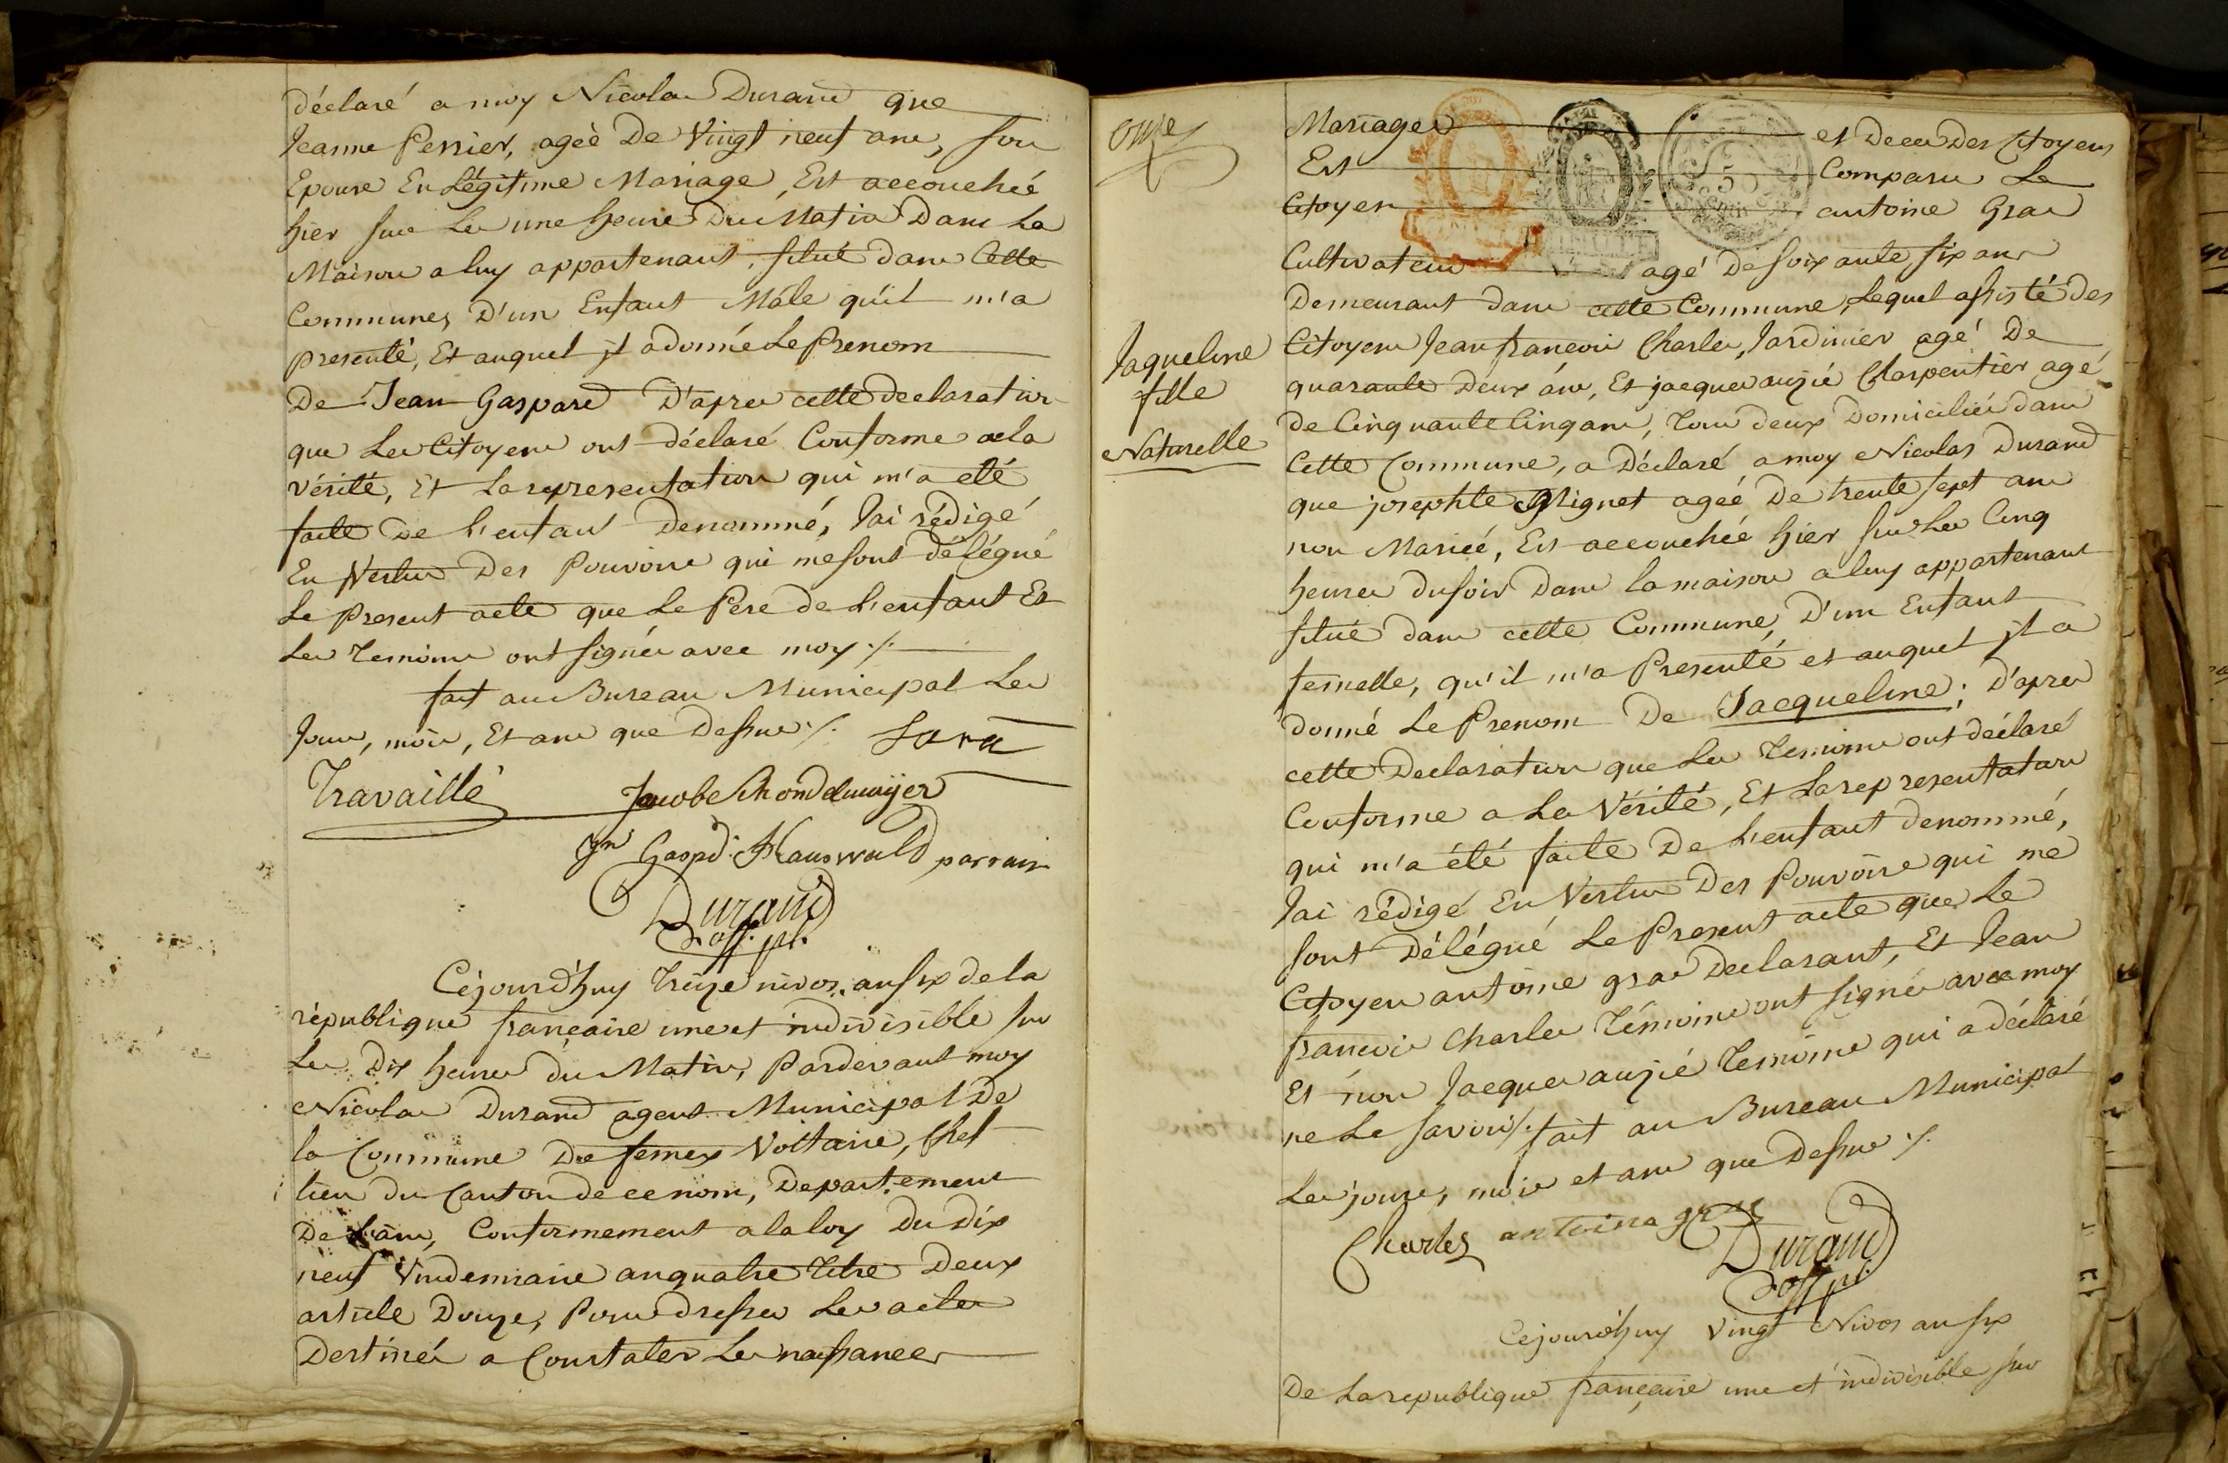 déclaré a moy Nicolas Durand que
Jeanne Perrier, agéé De Vingt neuf ans, son
Epouse En Légitime Mariage, Est accouchéé
hier sur les une heure Du Matin Dans La
Maison a luy appartenant, situé dans Cette
Commune, D'un Enfant Mâle qu'il m'a
presenté, Et auquel jl a donné Le Prenom
De Jean Gaspard D'apres cette declaration
que Les Citoyens ont déclaré Conforme a la
Vérité, Et La representation qui m'a eté
faite De L'enfant Denommé, J'ai rédigé
En Vertu Des Pouvoirs qui me sont Délégué
Le Present acte que Le Pere de L'enfant Et
Les Temoins ont signés avec moy ./.
fait au Bureau Municipal Les
Jour, mois, Et ans que Dessus ./.
Travaillé
Jacobe Schondelmayer
Gaspd. Hauswald parrain
Durand
off. pl.
Cejourd'huy Treize nivos. an six de la
république française une et indivisible sur
Les Dix heures du Matin, Pardevant moy
Nicolas Durand agent Municipal De
la Commune De fernex Voltaire, Chef
lieu du Canton de ce nom, Departement
De L'ain, Conformement a la loy Du Dix
neuf Vindemiaire an quatre titre Deux
article Douze, Pour dresser Les actes
Destinés a Constater Les naissances
onze
Mariages et Deces Des Citoyens
Est Comparu Le
Citoyen antoine Gras
Cultivateur agé De soixante six ans
Demeurant dans cette Commune, Lequel assisté des
Citoyens Jean françois Charles, Jardinier agé De
quarante Deux ans, Et jacques auzié Charpentier agé
de Cinquante Cinq ans, Tous deux Domiciliés dans
Cette Commune, a Déclaré a moy Nicolas Durand
que josephte Grignet agéé De trente sept ans
non Mariéé, Est accouchéé hier sur Les Cinq
heures du soir Dans la maison a luy appartenant
situé dans cette Commune, D'un Enfant
femelle, qu'il m'a Presenté et auquel jl a
donné Le Prenom De Jacqueline; D'apres
cette Declaration que Les Temoins ont déclaré
Conforme a La Vérité, Et La representation
qui m'a été faite De L'enfant denommé,
J'ai rédigé En Vertu Des Pouvoirs qui me
sont Délégué Le Present acte que Le
Citoyen antoine gras Declarant, Et Jean
françois Charles Témoins ont signés avec moy
Et non Jacques auzié Temoins qui a déclaré
ne Le savoir ./. fait au Bureau Municipal
Les jours, mois et ans que Dessus ./.
Charles antoine gras
Durand
off. pl.
Cejourd'huy Vingt Nivos an six
De La republique française une et indivisible sur
Jaqueline
fille
Naturelle